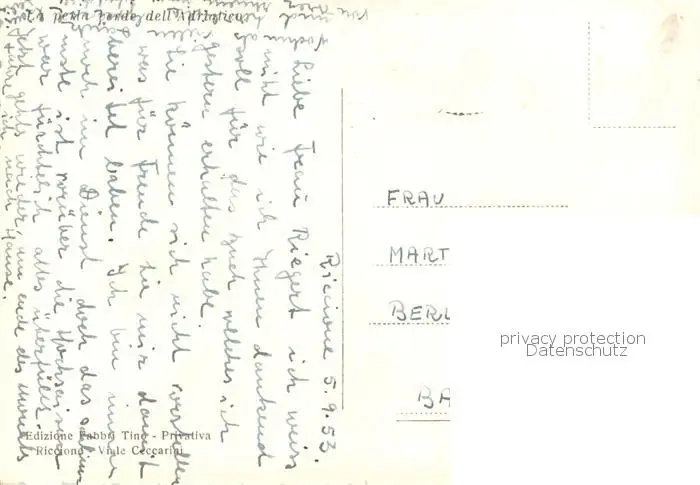 La perla verde dell'Adriatico
Riccione 5.9.53.
Liebe Frau Riegert ich weiss
nicht wie ich Ihnen dankend
soll für das Buch welches ich
gestern erhalten habe.
Sie können sich nicht vorstellen
was für Freude Sie mir damit
bereitet haben. Ich bin immer
noch im Dienst doch das schlim
mste ist vorüber die Hochsaison
war fürchterlich alles überfüllt
jetzt gehts wieder, um ende des monats
fahre ich nach Hause.
FRAU
MART
BERL
BA
privacy protection
Datenschutz
Edizione Fabbri Tino - Privativa
Riccione - Viale Ceccarini